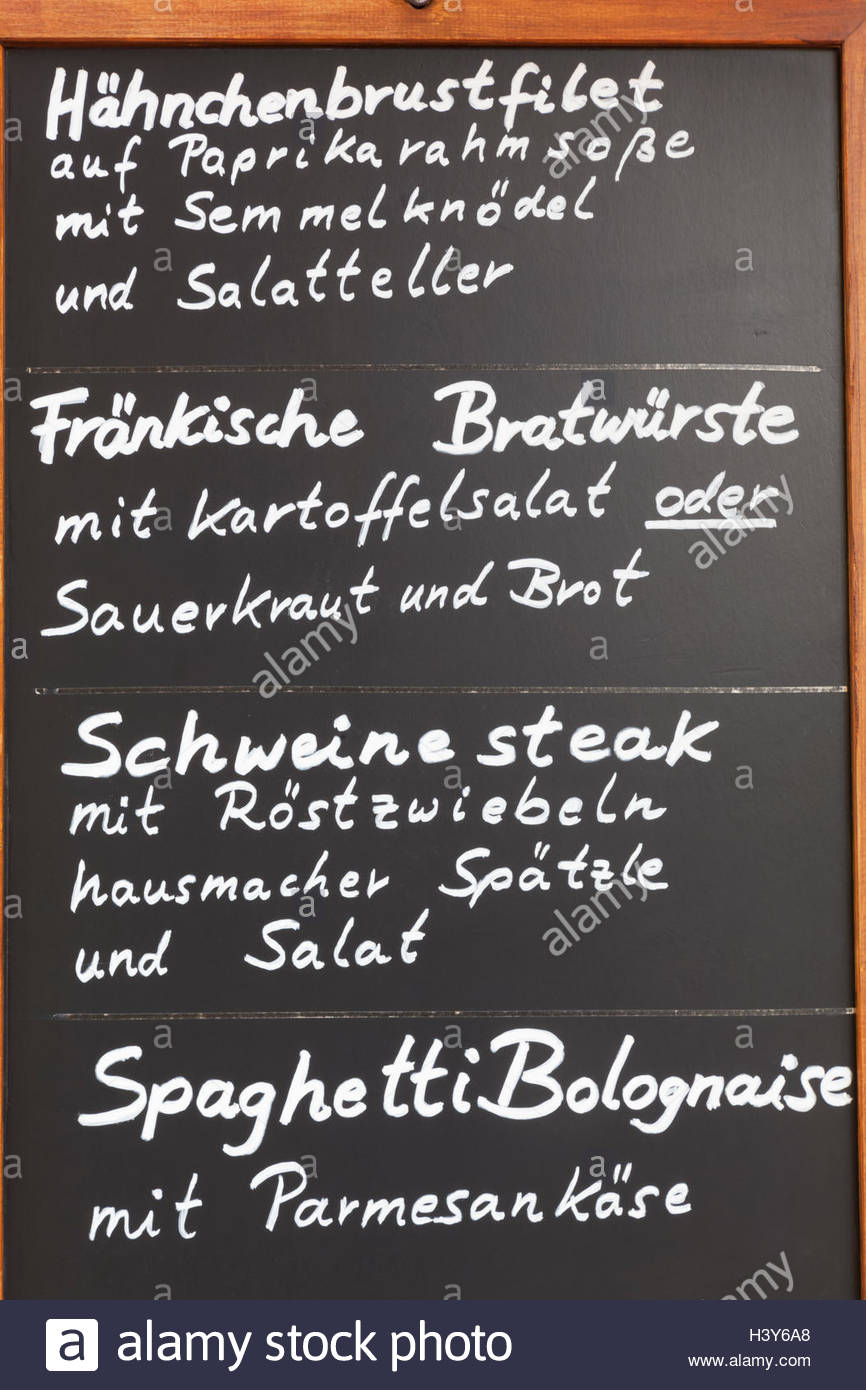 Hähnchenbrustfilet
auf Paprikarahmsoße
mit Semmelknödel
und Salatteller
Fränkische Bratwürste
mit Kartoffelsalat oder
Sauerkraut und Brot
Schweinesteak
mit Röstzwiebeln
hausmacher Spätzle
und Salat
Spaghetti Bolognaise
mit Parmesankäse
a alamy stock photo
H3Y6A8
www.alamy.com